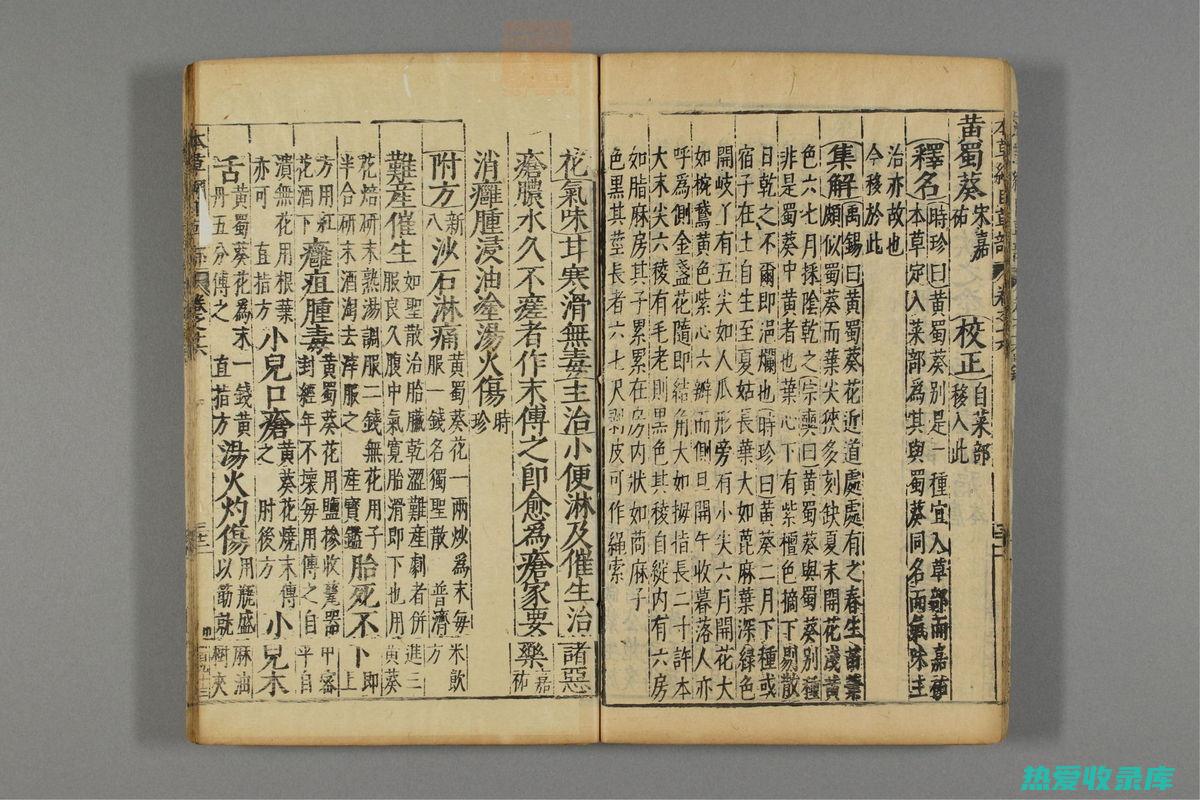 黃蜀葵宋嘉祐校正自菜部移入此
釋名時珍曰黃蜀葵別是一種宜入草部而嘉祐
本草定入菜部為其與蜀葵同名而氣味主
治亦故也
今移於此
集解禹錫曰黃蜀葵花近道處處有之春生苗葉
頗似蜀葵而葉尖狹多刻缺夏末開花淺黃
色六七月採陰乾之宗奭曰黃蜀葵與蜀葵別種
非是蜀葵中黃者也葉心下有紫檀色摘下剔散
日乾之不爾即浥爛也時珍曰黃葵二月下種或
宿子在土自生至夏始長葉大如蓖麻葉深綠色
開岐丫有五尖如人爪形旁有小尖六月開花大
如椀鵝黃色紫心六瓣而側旦開午收暮落人亦
呼爲側金盞花隨即結角大如拇指長二寸許本
大末尖六稜有毛老則黑色其稜自綻內有六房
如脂麻房其子累累在房內狀如茼麻子
色黑其莖長者六七尺剝皮可作繩索
花氣味甘寒滑無毒主治小便淋及催生治諸惡
瘡膿水久不瘥者作末傅之即愈爲瘡家要藥嘉祐
消癰腫浸油塗湯火傷時珍
附方新八沙石淋痛黃蜀葵花一兩炒爲末每米飲
服一錢名獨聖散 普濟方
難産催生如聖散治胎臟乾澀難産劇者併進三
服良久腹中氣寬胎滑即下也用黃葵
花焙研末熟湯調服二錢無花用子
半合研末酒淘去滓服之 産寶鑑胎死不下即上
方用紅
花酒下癰疽腫毒黃蜀葵花用鹽摻收瓷器中密
封經年不壞每用傅之自平自
潰無花用根葉
亦可 直指方小兒口瘡黃葵花燒末傅
之 肘後方小兒木
舌黃蜀葵花爲末一錢黃
丹五分傅之 直指方湯火灼傷用瓶盛麻油
以筯就樹夾
热爱收录库